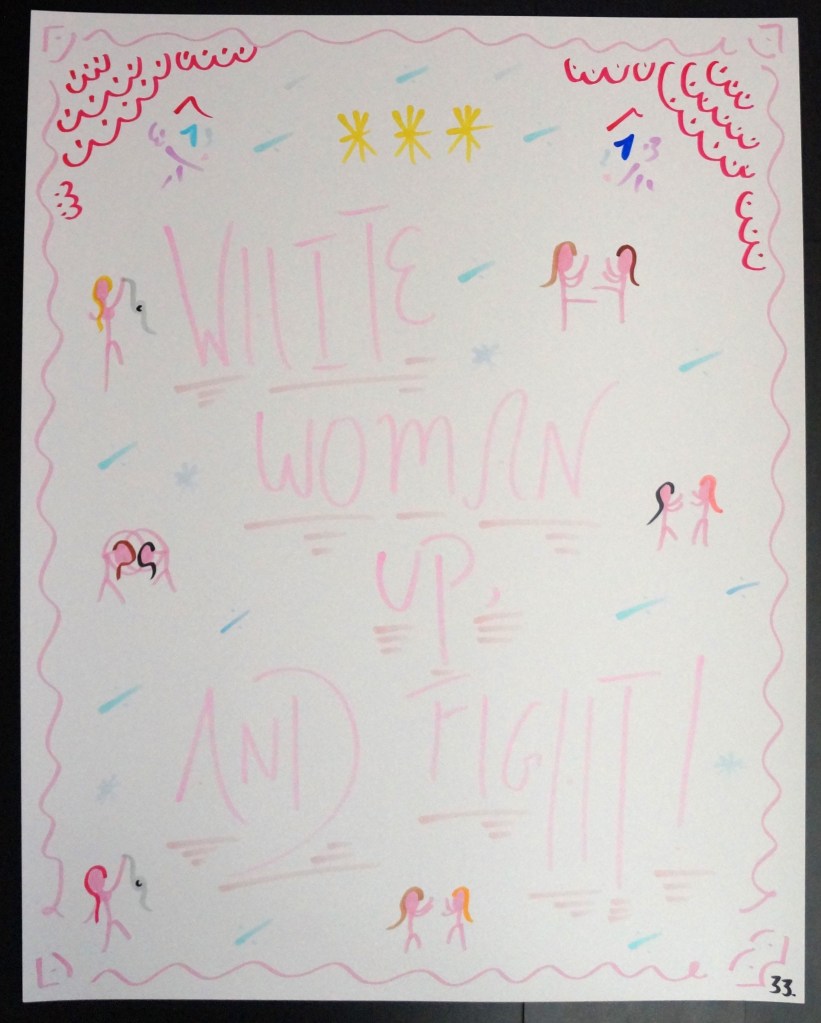 1 1
WHITE
WOMAN
UP,
AND FIGHT!
33.